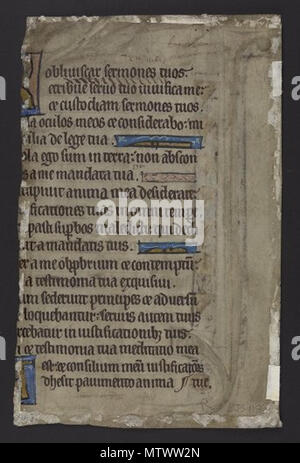 obliviscar sermones tuos.
etribue servo tuo vivifica me:
et custodiam sermones tuos.
la oculos meos et considerabo: mi
alia de lege tua.
ola ego sum in terra: non abscon
s a me mandata tua.
cupivit anima mea desiderare:
ificationes tuas in omni tempr̄.
pasti superbos maledicti qui de
nt a mandatis tuis.
er a me obprobrium et contemptū:
a testimonia tua exquisivi.
im sederunt principes et adversū
loquebantur: servus autem tuus
rcebatur in iustificationibȝ tuis.
et testimonia tua meditatio mea
est: et consilium meū iustificatōes
dhesit pavimento anima tue.
alamy
Image ID: MTWW2N
www.alamy.com